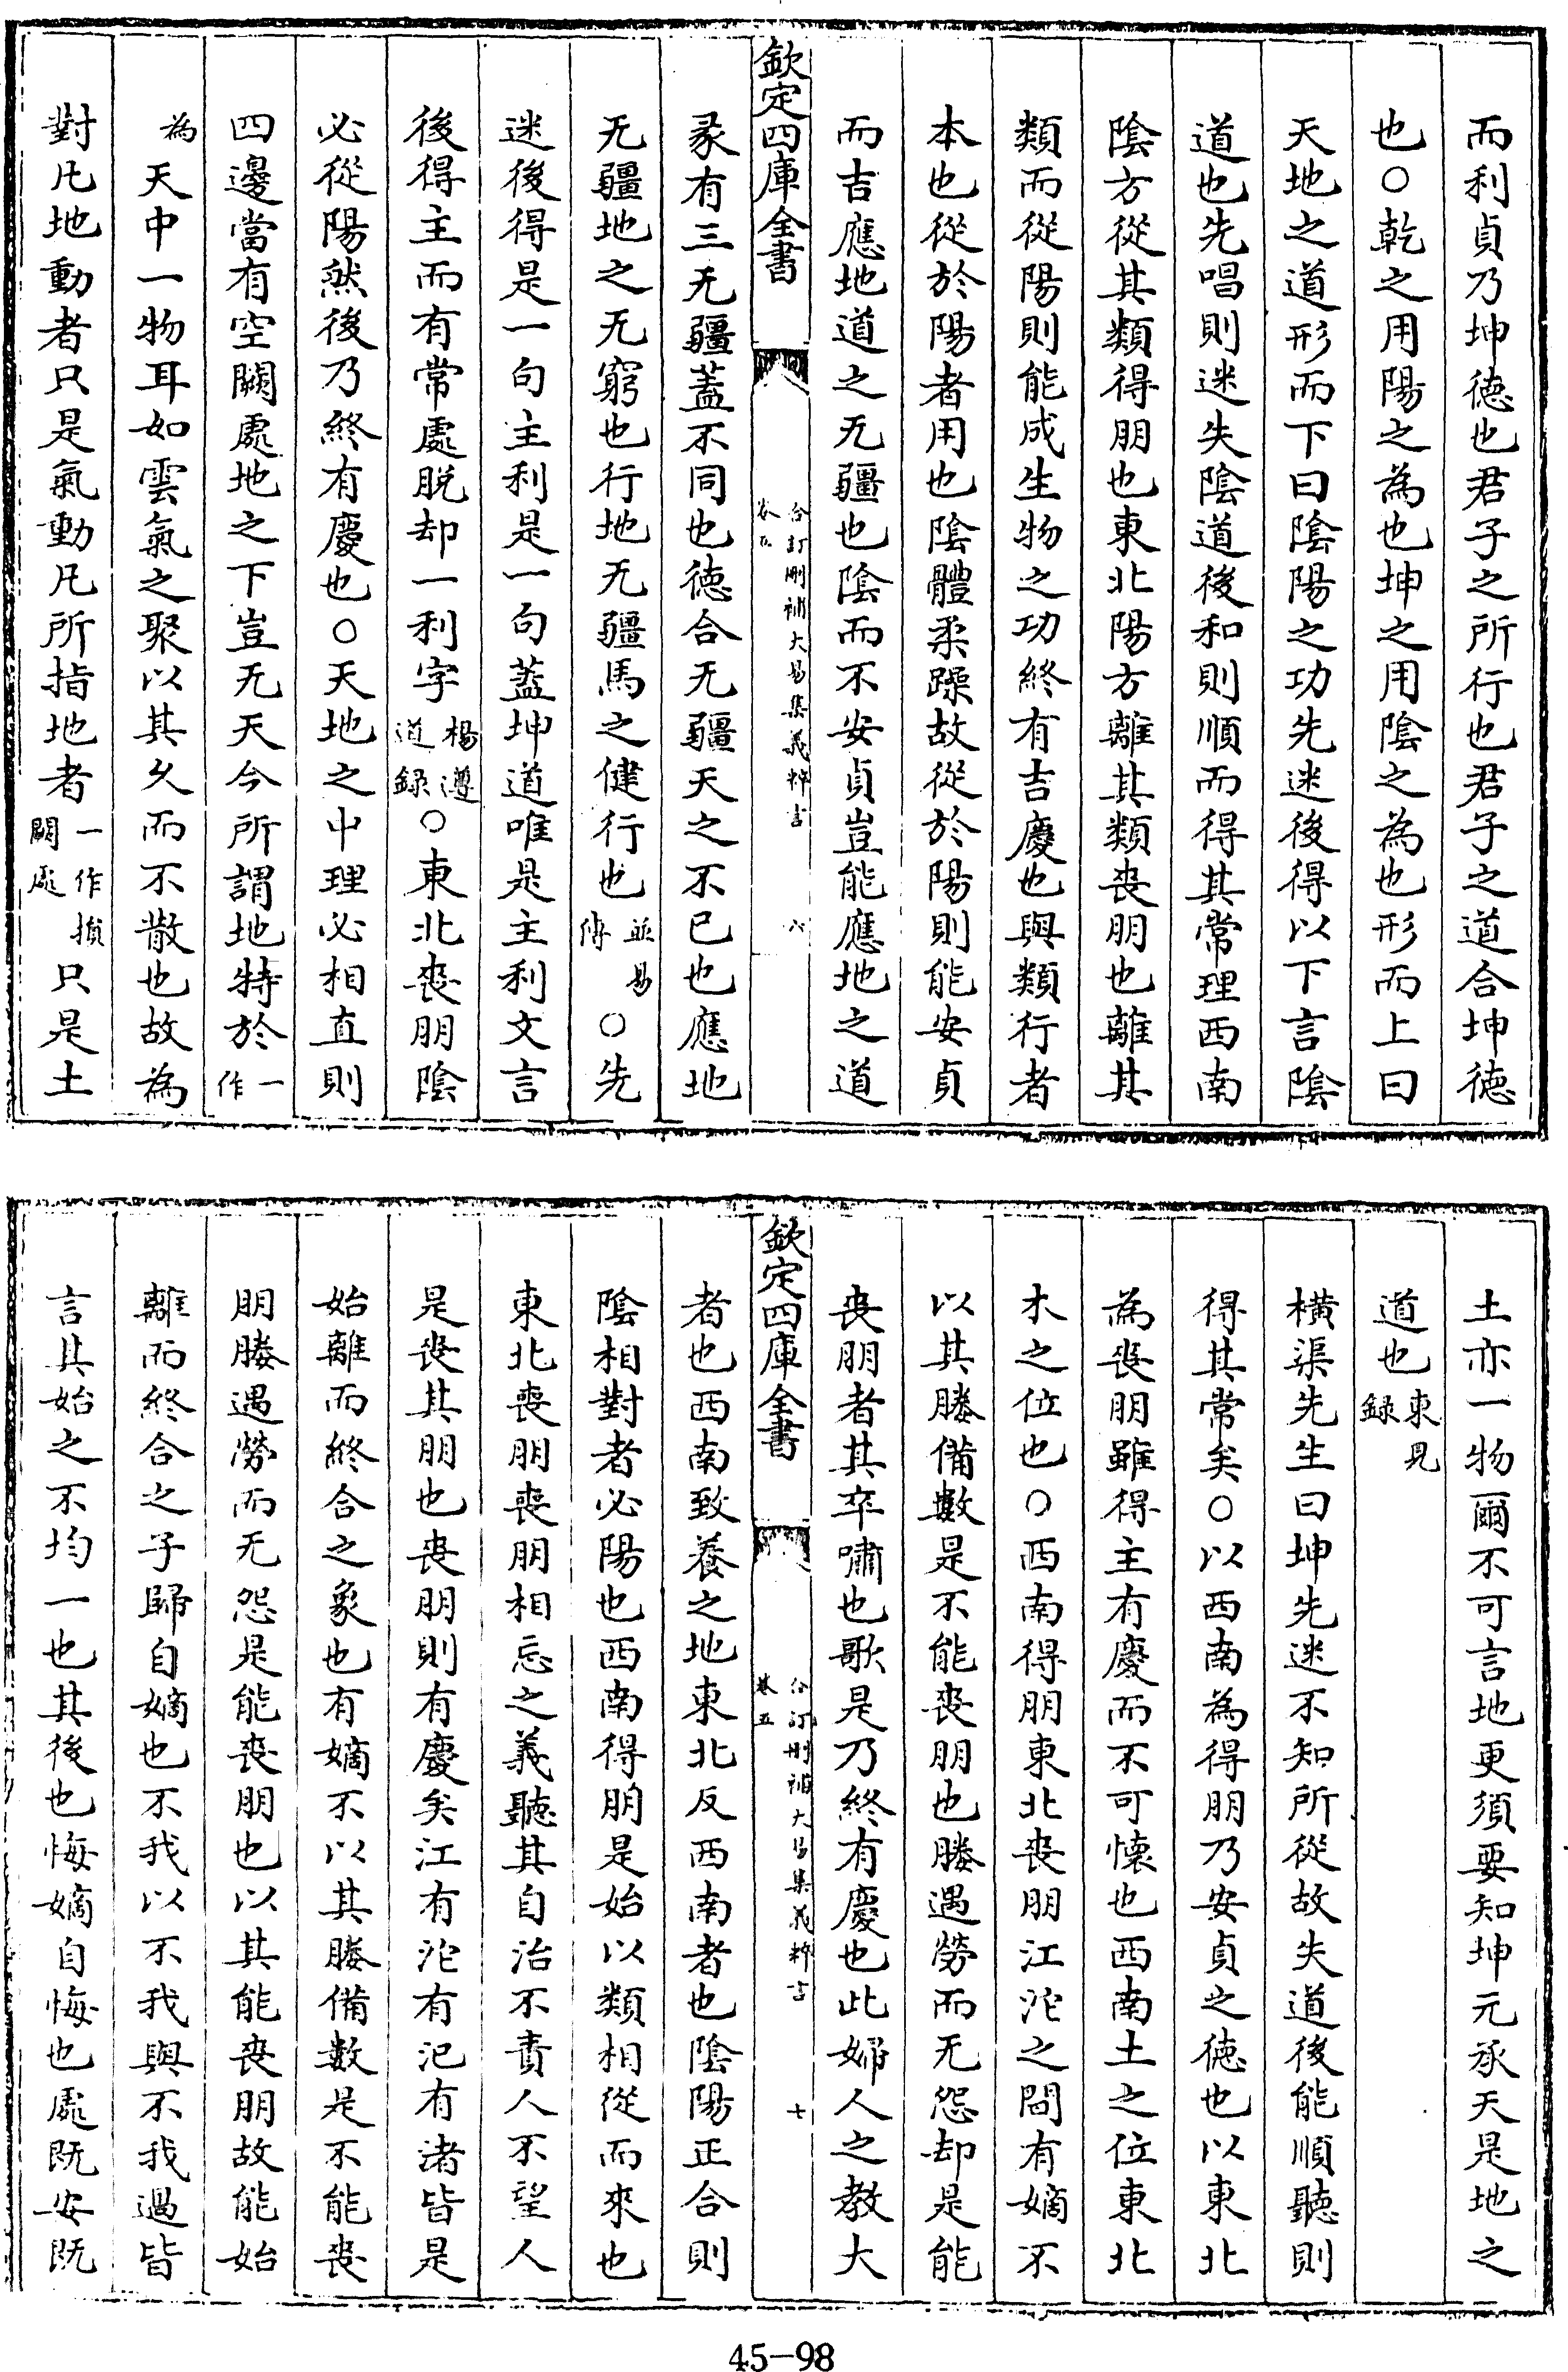 而利貞乃坤德也君子之所行也君子之道合坤德
也○乾之用陽之為也坤之用陰之為也形而上曰
天地之道形而下曰陰陽之功先迷後得以下言陰
道也先唱則迷失陰道後和則順而得其常理西南
陰方從其類得朋也東北陽方離其類喪朋也離其
類而從陽則能成生物之功終有吉慶也與類行者
本也從於陽者用也陰體柔躁故從於陽則能安貞
而吉應地道之无疆也陰而不安貞豈能應地之道
欽定四庫全書
合訂刪補大易集義粹言
卷五
六
彖有三无疆蓋不同也德合无疆天之不已也應地
无疆地之无窮也行地无疆馬之健行也並易傳○先
迷後得是一句主利是一句蓋坤道唯是主利文言
後得主而有常處脱却一利字楊遵道録○東北喪朋陰
必從陽然後乃終有慶也○天地之中理必相直則
四邊當有空闕處地之下豈无天今所謂地特於一作
為天中一物耳如雲氣之聚以其久而不散也故為
對凡地動者只是氣動凡所指地者一作損闕處只是土
土亦一物爾不可言地更須要知坤元承天是地之
道也東見録
橫渠先生曰坤先迷不知所從故失道後能順聽則
得其常矣○以西南為得朋乃安貞之德也以東北
為喪朋雖得主有慶而不可懷也西南土之位東北
木之位也○西南得朋東北喪朋江沱之間有嫡不
以其媵備數是不能喪朋也媵遇勞而无怨却是能
喪朋者其卒嘯也歌是乃終有慶也此婦人之教大
欽定四庫全書
合訂刪補大易集義粹言
卷五
七
者也西南致養之地東北反西南者也陰陽正合則
陰相對者必陽也西南得朋是始以類相從而來也
東北喪朋喪朋相忘之義聽其自治不責人不望人
是喪其朋也喪朋則有慶矣江有沱有汜有渚皆是
始離而終合之象也有嫡不以其媵備數是不能喪
朋媵遇勞而无怨是能喪朋也以其能喪朋故能始
離而終合之子歸自嫡也不我以不我與不我過皆
言其始之不均一也其後也悔嫡自悔也處既安既
45-98